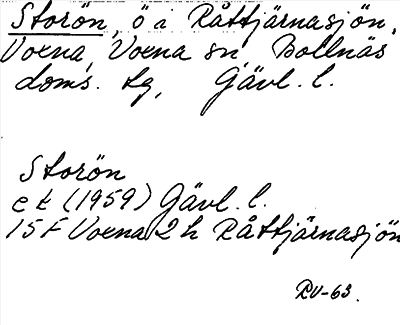 Storön, ö i Råttjärnasjön,
Voxna, Voxna sn, Bollnäs
doms. tg, Gävl. l.
Storön
ek (1959) Gävl. l.
15F Voxna 2h Råttjärnasjön
RV-63.